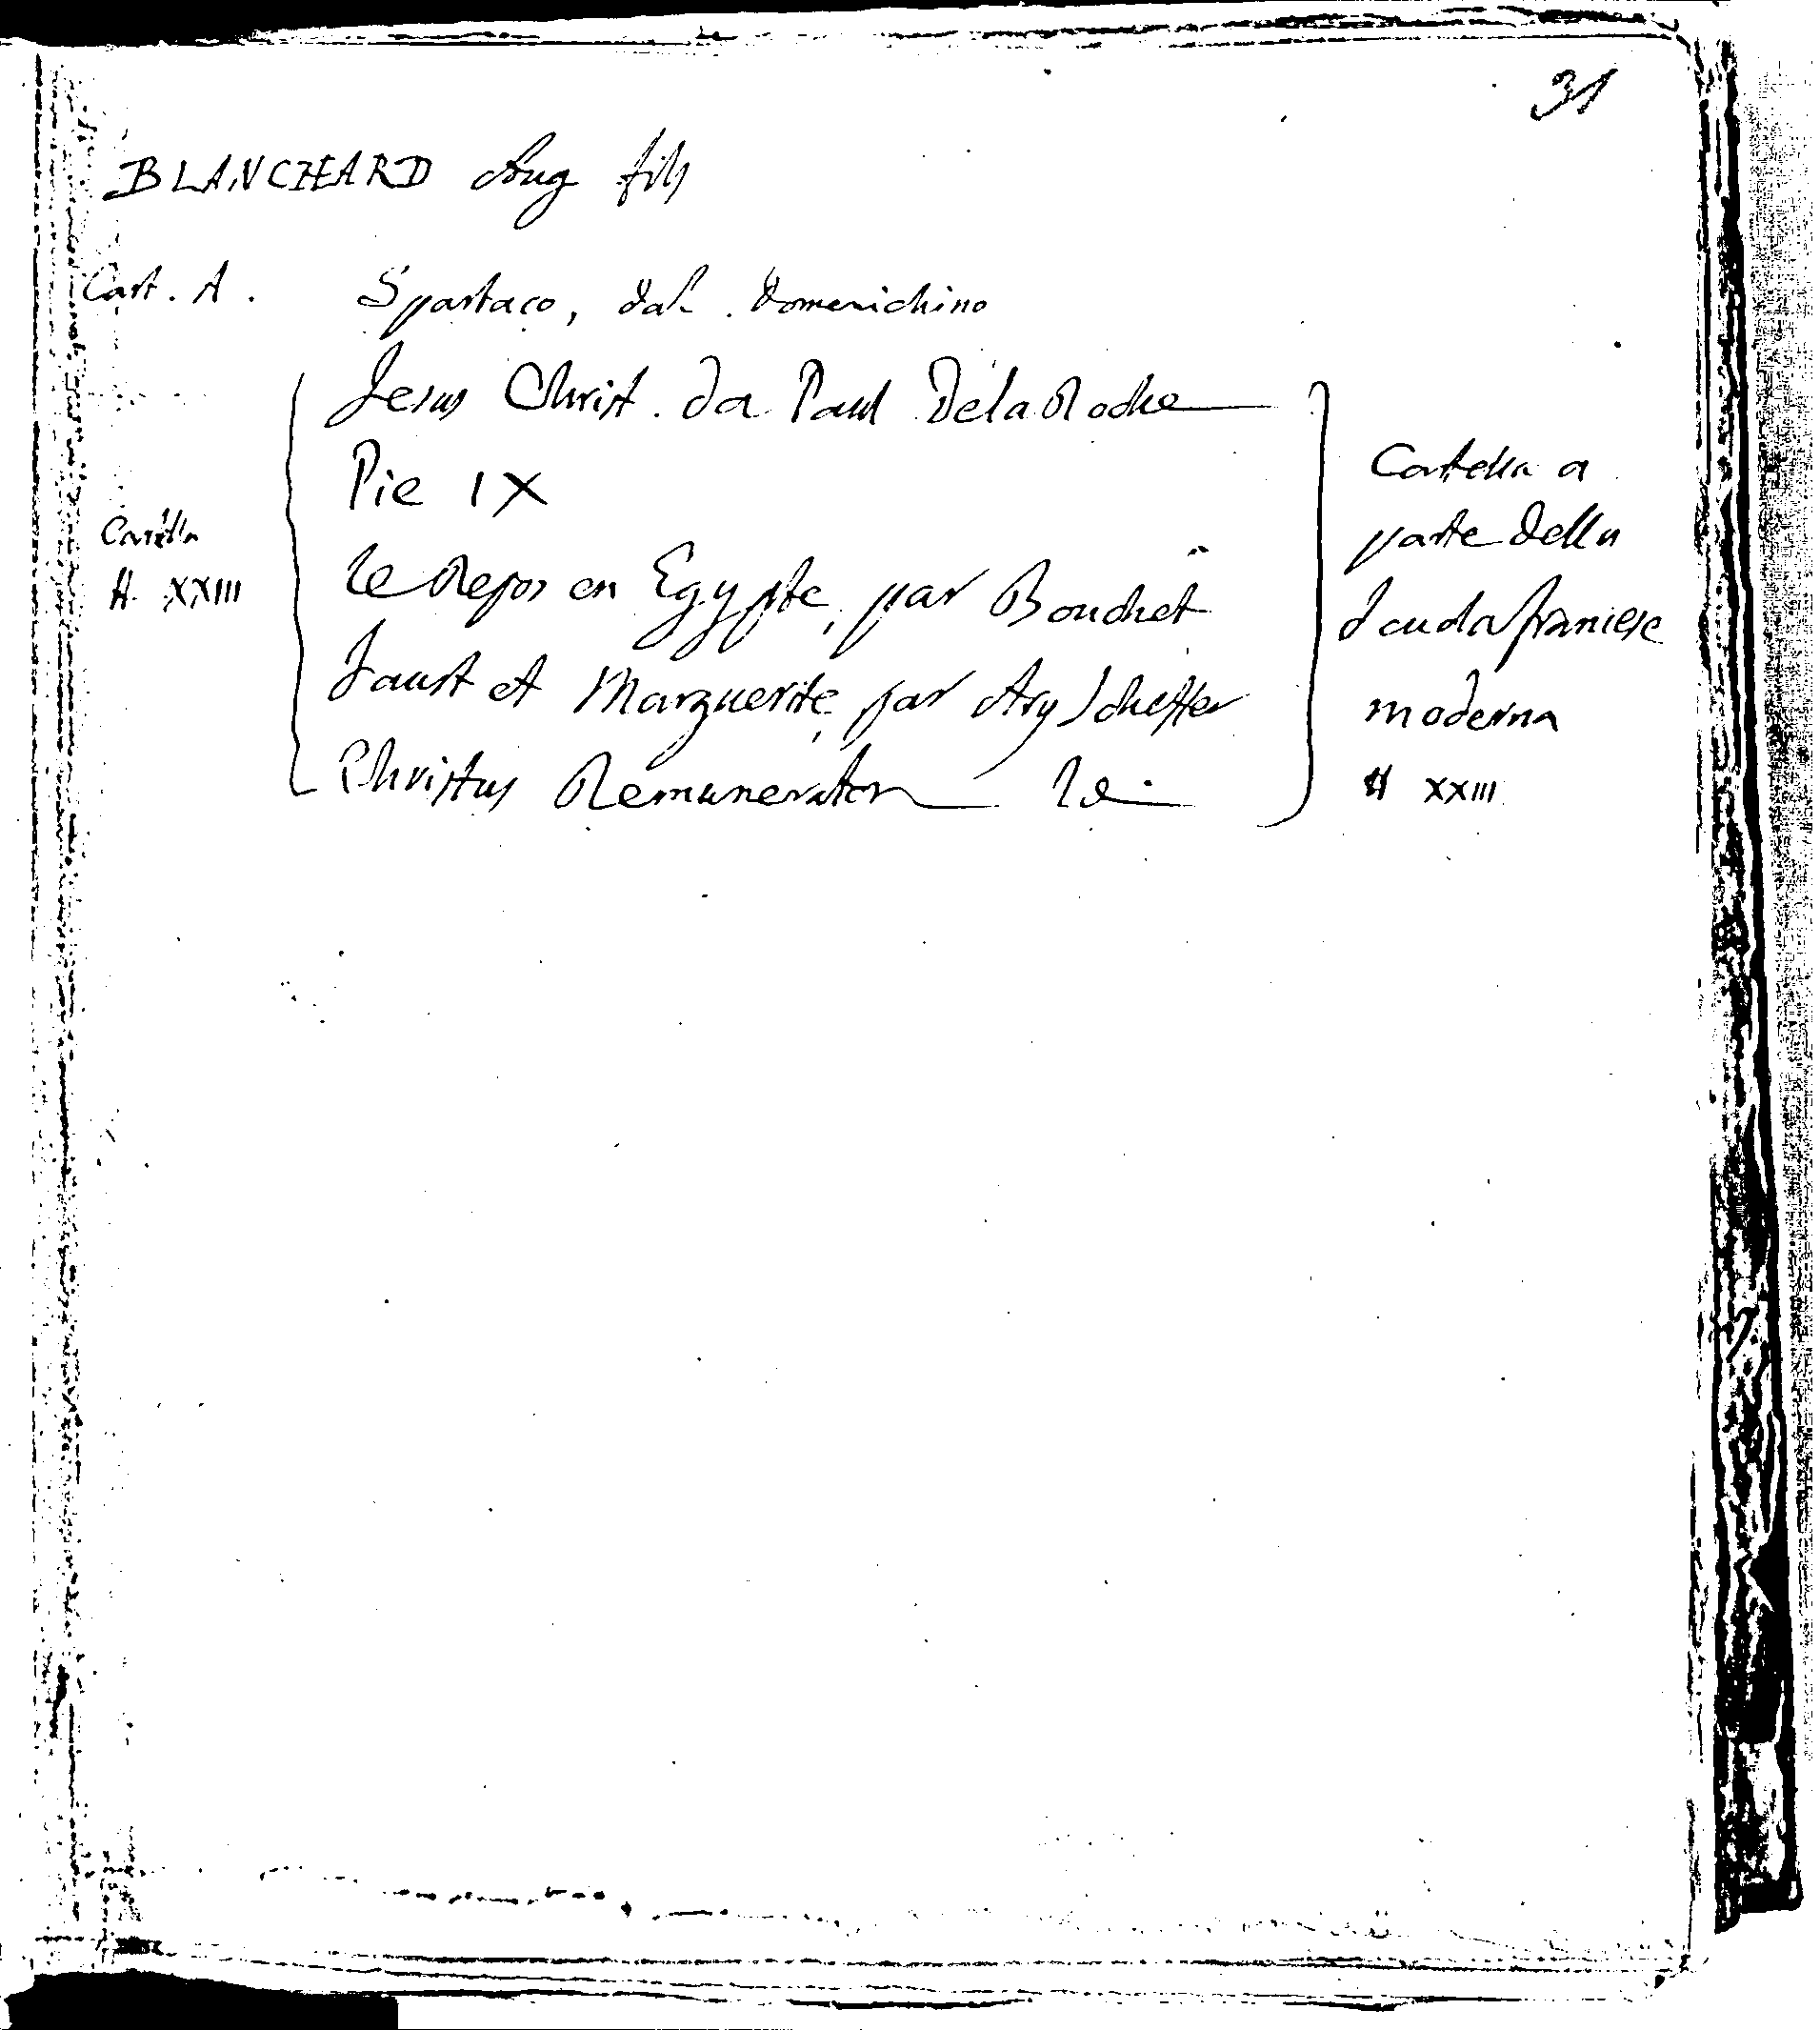 31
BLANCHARD Aug fils
Cart. A. Spartaco, dal Domenichino
Jesus Christ. da Paul Delaroche
Pie IX
Le Repos en Egypte, par Bouchot
Faust et Marguerite, par Ary Scheffer
Christus Remunerator Id.
Cartella
A XXIII
Cartella a
parte della
Scuola francese
moderna
A XXIII